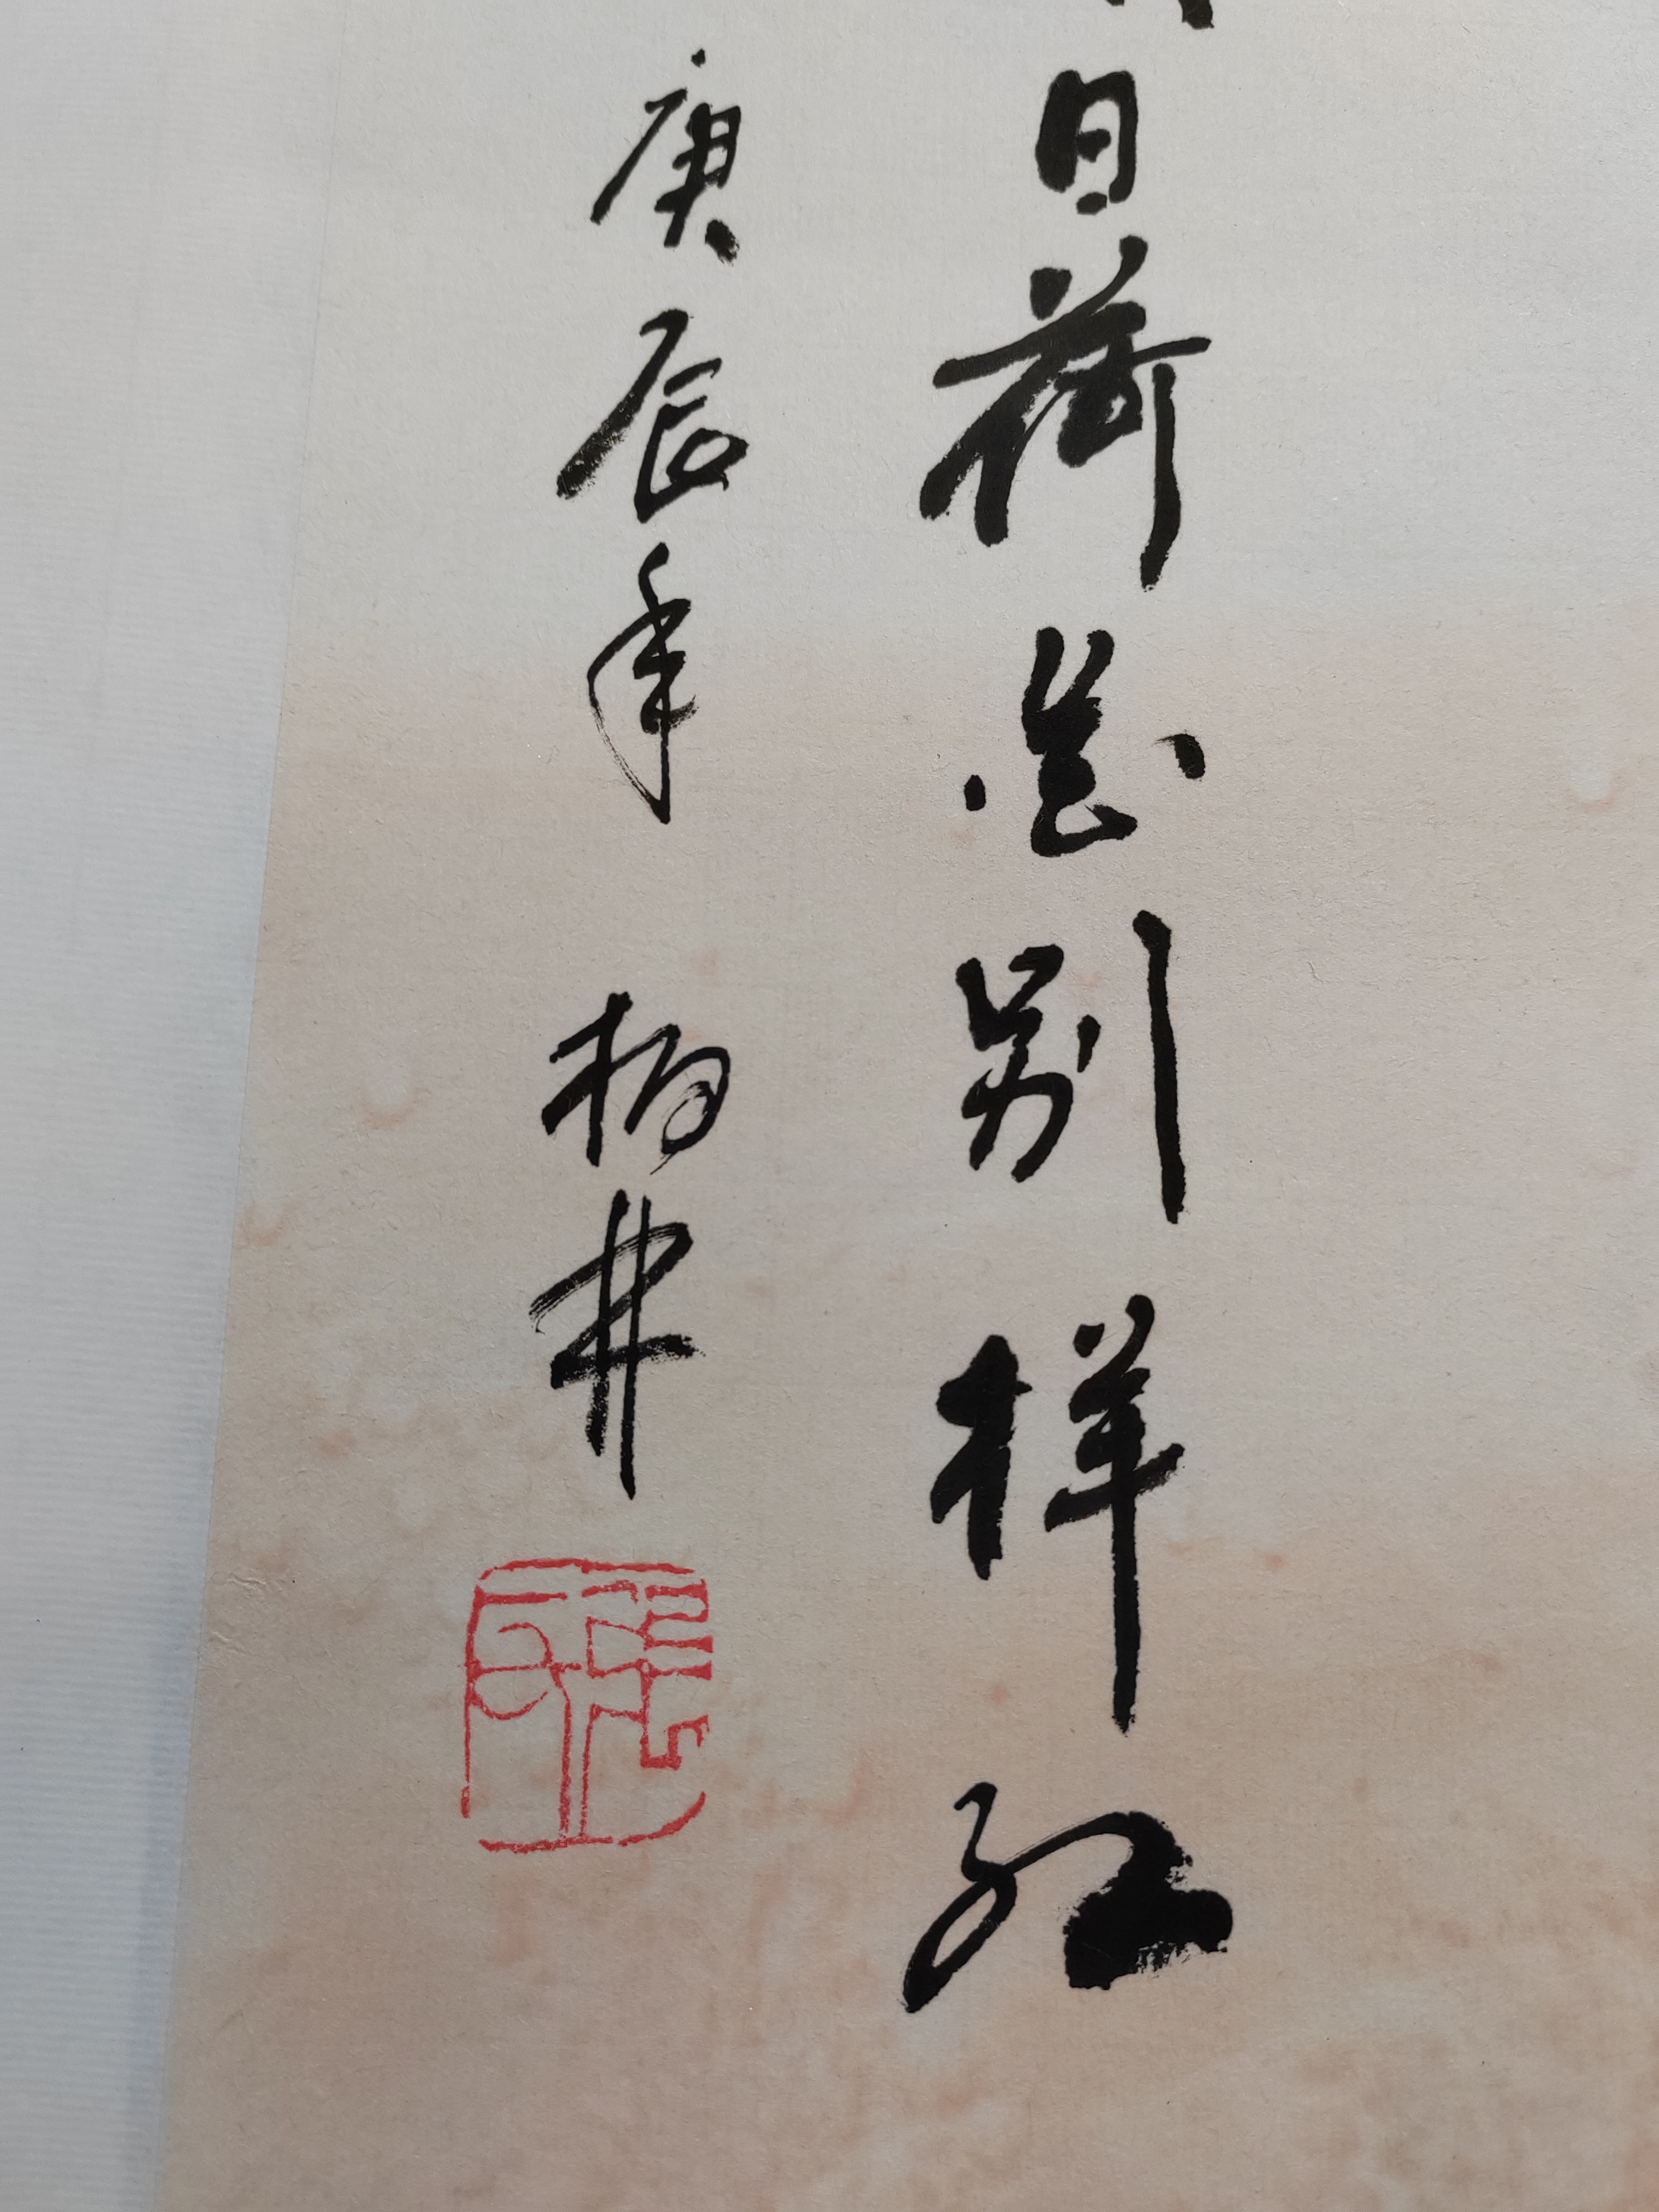 日荷花别样红
庚辰年 柏井